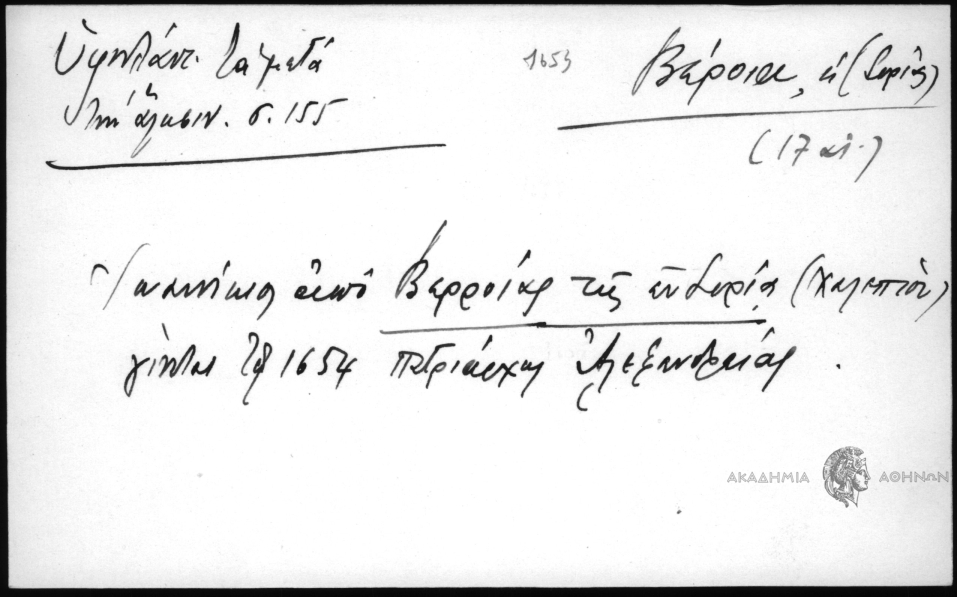 Ὑψηλάντ. Τὰ μετὰ
τὴν ἅλωσιν. σ. 155
1653
Βέροια, ἡ (Συρίας)
(17 αἰ.)
Ἰωαννίκιος ἀπὸ Βερροίας τῆς ἐν Συρίᾳ
γίνεται τῷ 1654 πατριάρχης Ἀλεξανδρείας.
ΑΚΑΔΗΜΙΑ ΑΘΗΝΩΝ